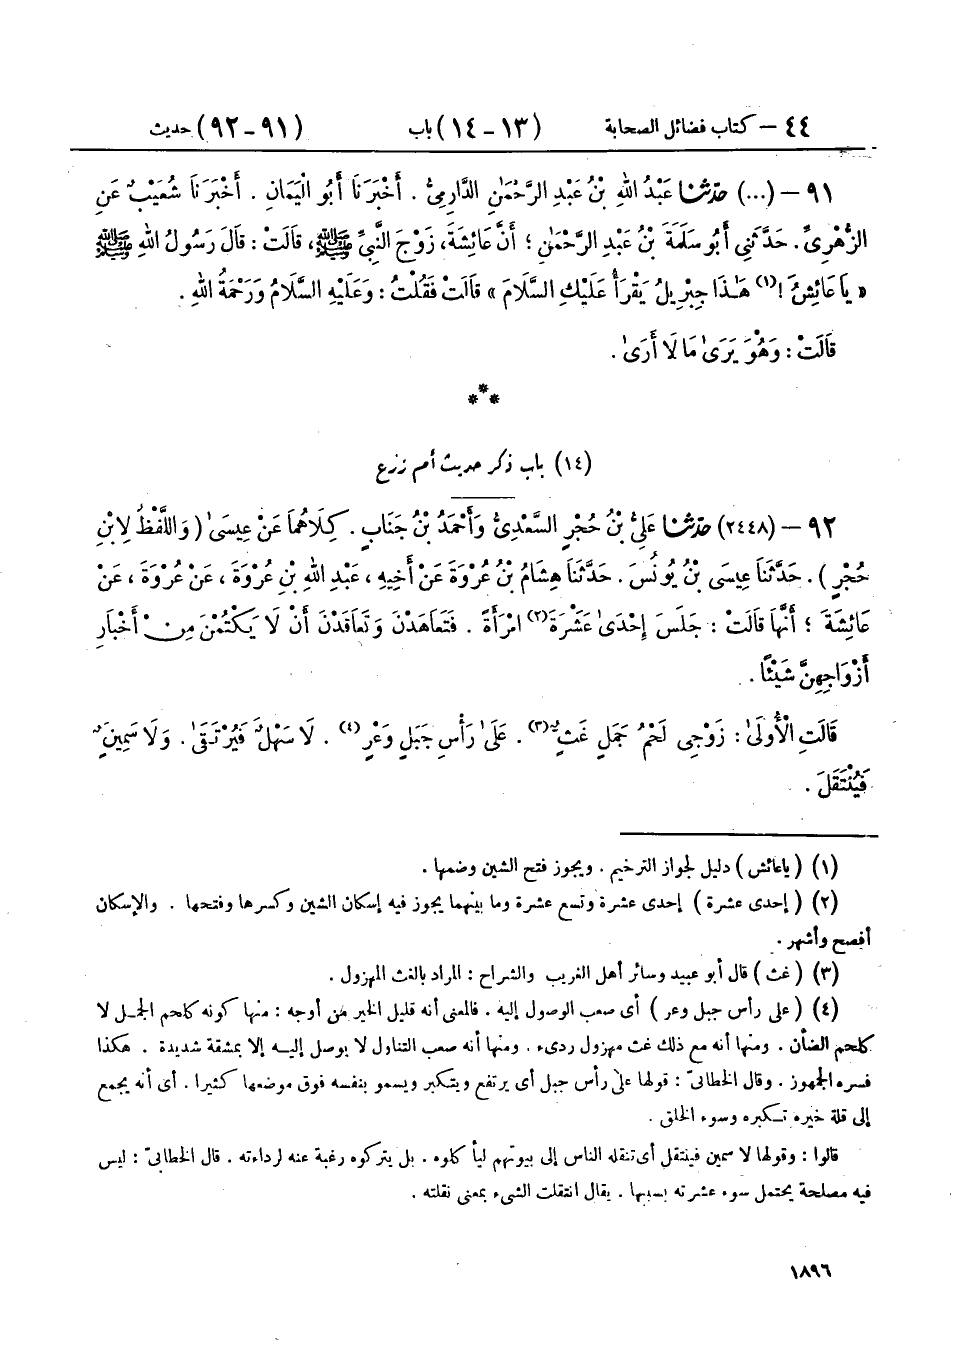 ٤٤ – كتاب فضائل الصحابة (١٣-١٤) باب (٩١-٩٢) حديث
٩١ – (...) حَدَّثَنَا عَبْدُ اللهِ بْنُ عَبْدِ الرَّحْمَٰنِ الدَّارِمِيُّ . أَخْبَرَنَا أَبُو الْيَمَانِ . أَخْبَرَنَا شُعَيْبٌ عَنِ
الزُّهْرِيِّ . حَدَّثَنِي أَبُو سَلَمَةَ بْنُ عَبْدِ الرَّحْمَٰنِ ؛ أَنَّ عَائِشَةَ، زَوْجَ النَّبِيِّ ﷺ، قَالَتْ : قَالَ رَسُولُ اللهِ ﷺ
« يَا عَائِشُ ! (١) هَٰذَا جِبْرِيلُ يَقْرَأُ عَلَيْكِ السَّلَامَ » قَالَتْ فَقُلْتُ : وَعَلَيْهِ السَّلَامُ وَرَحْمَةُ اللهِ .
قَالَتْ : وَهُوَ يَرَىٰ مَا لَا أَرَىٰ .
***
(١٤) باب ذكر حديث أم زرع
٩٢ – (٢٤٤٨) حَدَّثَنَا عَلِيُّ بْنُ حُجْرٍ السَّعْدِيُّ وَأَحْمَدُ بْنُ جَنَابٍ . كِلَاهُمَا عَنْ عِيسَىٰ ( وَاللَّفْظُ لِابْنِ
حُجْرٍ ) . حَدَّثَنَا عِيسَى بْنُ يُونُسَ . حَدَّثَنَا هِشَامُ بْنُ عُرْوَةَ عَنْ أَخِيهِ ، عَبْدِ اللهِ بْنِ عُرْوَةَ ، عَنْ عُرْوَةَ ، عَنْ
عَائِشَةَ ؛ أَنَّهَا قَالَتْ : جَلَسَ إِحْدَىٰ عَشْرَةَ (٢) امْرَأَةً . فَتَعَاهَدْنَ وَتَعَاقَدْنَ أَنْ لَا يَكْتُمْنَ مِنْ أَخْبَارِ
أَزْوَاجِهِنَّ شَيْئًا .
قَالَتِ الْأُولَىٰ : زَوْجِي لَحْمُ جَمَلٍ غَثٌّ (٣) . عَلَىٰ رَأْسِ جَبَلٍ وَعْرٍ (٤) . لَا سَهْلٌ فَيُرْتَقَىٰ . وَلَا سَمِينٌ
فَيُنْتَقَلَ .
(١) ( يا عائش ) دليل لجواز الترخيم . ويجوز فتح الشين وضمها .
(٢) ( إحدى عشرة ) إحدى عشرة وتسع عشرة وما بينهما يجوز فيه إسكان الشين وكسرها وفتحها . والإسكان
أفصح وأشهر .
(٣) ( غث ) قال أبو عبيد وسائر أهل الغريب والشراح : المراد بالغث المهزول .
(٤) ( على رأس جبل وعر ) أى صعب الوصول إليه . فالمعنى أنه قليل الخير من أوجه : منها كونه كلحم الجمل لا
كلحم الضأن . ومنها أنه مع ذلك غث مهزول ردىء . ومنها أنه صعب التناول لا يوصل إليه إلا بمشقة شديدة . هكذا
فسره الجمهور . وقال الخطابىّ : قولها على رأس جبل أى يرتفع ويتكبر ويسمو بنفسه فوق موضعها كثيرا . أى أنه يجمع
إلى قلة خيره تكبره وسوء الخلق .
قالوا : وقولها لا سمين فينتقل أى تنقله الناس إلى بيوتهم ليأكلوه . بل يتركوه رغبة عنه لرداءته . قال الخطابىّ : ليس
فيه مصلحة يحتمل سوء عشرته بسببها . يقال انتقلت الشىء بمعنى نقلته .
١٨٩٦